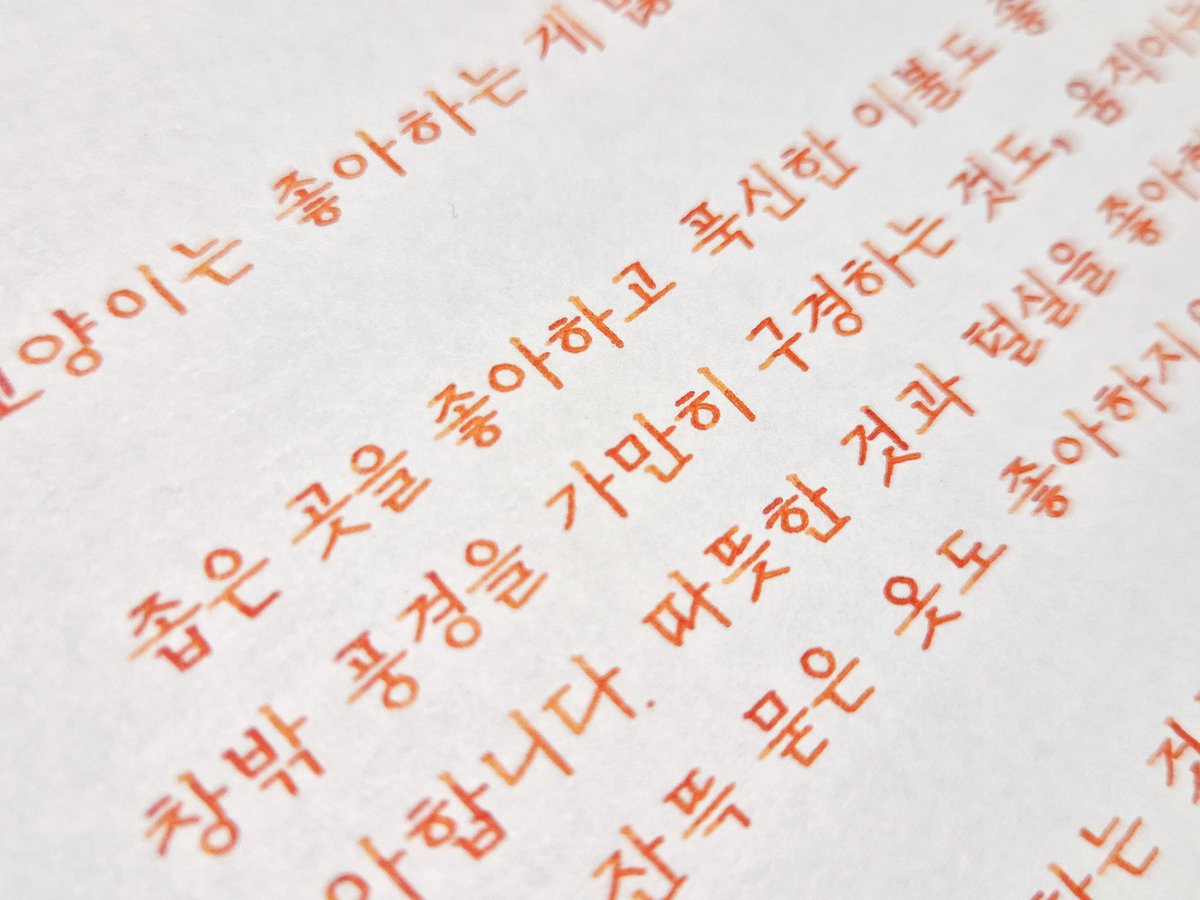 고양이는 좋아하는 게 많
좁은 곳을 좋아하고 폭신한 이불도 좋
창밖 풍경을 가만히 구경하는 것도, 움직이는
아합니다. 따뜻한 것과 털실을 좋아하
잔뜩 묻은 옷도 좋아하지
하는